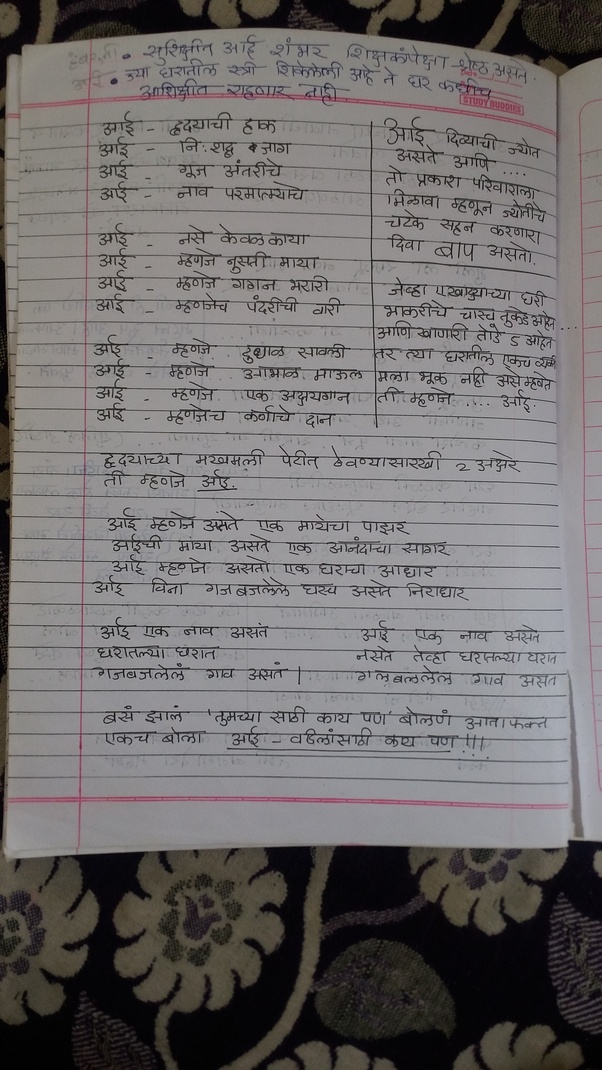 • सुशिक्षीत आई शंभर शिक्षकांपेक्षा श्रेष्ठ असते.
• ज्या घरातील स्त्री शिकलेली आहे ते घर कधीच
आशिक्षीत राहणार नाही
STUDY BUDDIES
आई - हृदयाची हाक
आई - नि:शद्ब जाग
आई - गूज अंतरीचे
आई - नाव परमात्म्याचे
आई - नसे केवळ काया
आई - म्हणजे नुसती माया
आई - म्हणजे गगन भरारी
आई - म्हणजेच पंढरीची वारी
आई - म्हणजे दुधाळ सावली
आई - म्हणजे आभाळ माऊल
आई - म्हणजे एक अक्षयगान
आई - म्हणजेच कर्णाचे दान
आई दिव्याची ज्योत
असते आणि ....
तो प्रकाश परिवाराला
मिळावा म्हणून ज्योतीचे
चटके सहन करणारा
दिवा बाप असतो.
जेव्हा एखाद्याच्या घरी
भाकरीचे चारच तुकडे आहेत ...
आणि खाणारी तोंडे 5 आहेत
तर त्या घरातील एकच व्यक्ती
मला भूक नाही असे म्हणते
ती म्हणजे .... आई.
हृदयाच्या मखमली पेटीत ठेवण्यासारखी 2 अक्षरे
ती म्हणजे आई.
आई म्हणजे असते एक मायेचा पाझर
आईची माया असते एक आनंदाचा सागर
आई म्हणजे असतो एक घराचा आधार
आई विना गजबजलेले घरच असते निराधार
आई एक नाव असतं
घरातल्या घरात
गजबजलेलं गाव असतं |
आई एक नाव असते
नसते तेव्हा घरातल्या घरात
गलबललेलं गाव असतं
बसं झालं 'तुमच्या साठी काय पण' बोलणं आता फक्त
एकच बोला आई - वडिलांसाठी काय पण !!!